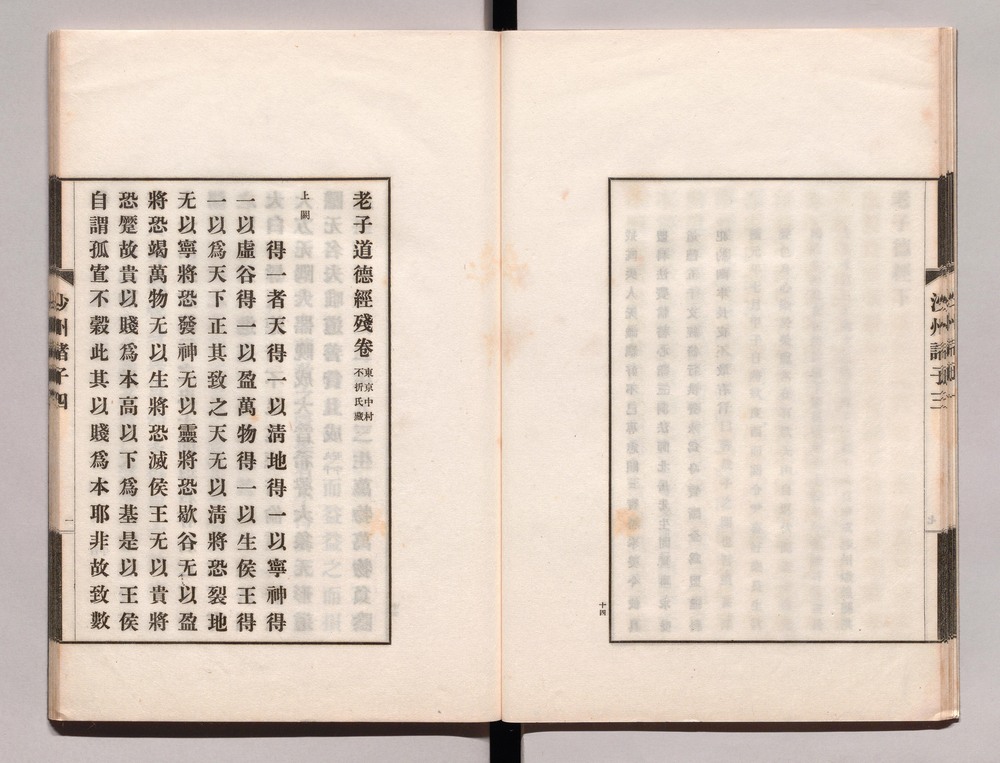 沙州諸子三
十四
老子道德經殘卷 東京中村
不折氏藏
上闕
得一者天得一以淸地得一以寧神得
一以虛谷得一以盈萬物得一以生侯王得
一以爲天下正其致之天无以淸將恐裂地
无以寧將恐發神无以靈將恐歇谷无以盈
將恐竭萬物无以生將恐滅侯王无以貴將
恐蹷故貴以賤爲本高以下爲基是以王侯
自謂孤寡不穀此其以賤爲本耶非故致數
沙州諸子四
一